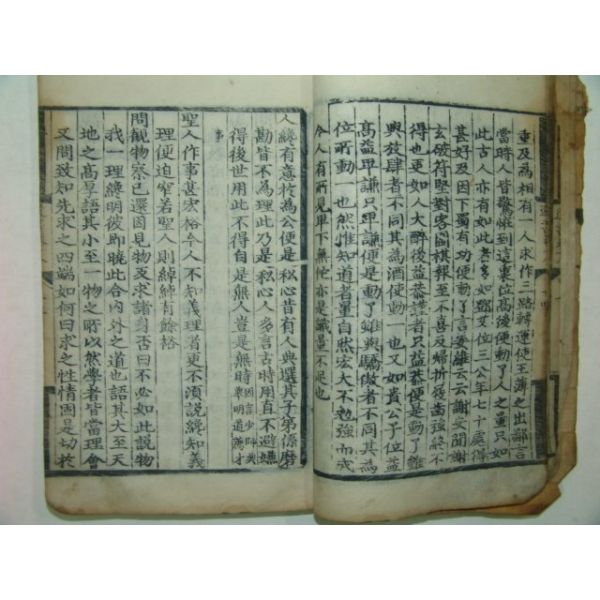 重及為相有一人求作三路轉運使王薄之出鄙言
當時人皆驚恠到這裏位高後便動了人之量只如
此古人亦有如此者多如鄧艾位三公年七十處得
甚好及因下蜀有功便動了言姜維云云謝安聞謝
玄破符堅對客圍棋報至不喜及歸折屐齒強終不
得也更如人大醉後益恭謹者只益恭便是動了雖
與放肆者不同其為酒所動一也又如貴公子位益
高益卑謙只卑謙便是動了雖與驕傲者不同其為
位所動一也然惟知道者量自然宏大不勉強而成
今人有所見卑下無他亦是識量不足也
人纔有意於為公便是私心昔有人典選其子弟係磨
勘皆不為理此乃是私心人多言古時用直不避嫌
得後世用此不得自是無人豈是無時因言少師典舉明道薦才
事
聖人作事甚宏裕今人不知義理者更不須說纔知義
理便迫窄若聖人則綽綽有餘裕
問觀物察已還因見物反求諸身否曰不必如此說物
我一理纔明彼即曉此合內外之道也語其大至天
地之高厚語其小至一物之所以然學者皆當理會
又問致知先求之四端如何曰求之性情固是切於